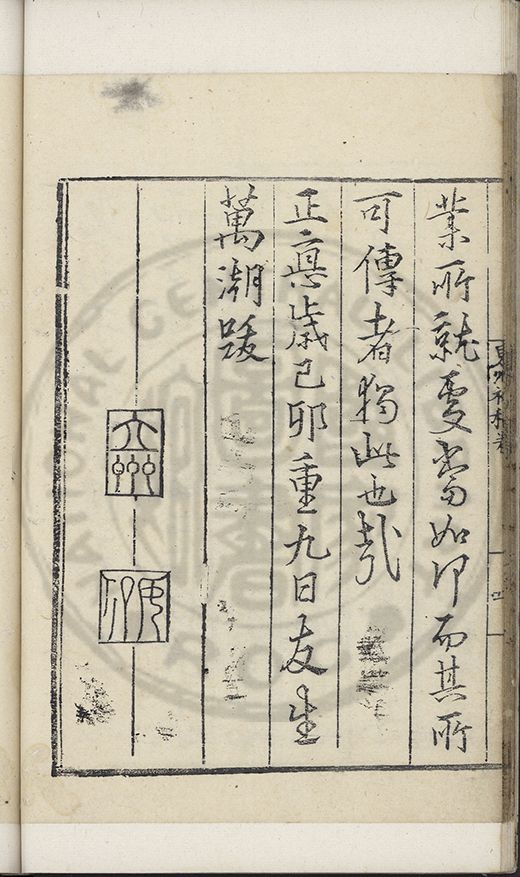 業所就處當如何而其所
可傳者獨此也哉
正德歲己卯重九日友生
萬潮跋